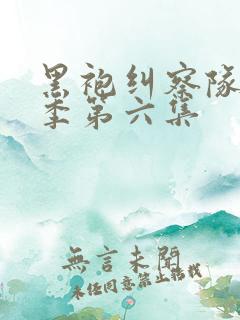 黑袍纠察队
季第六集
無言未開
未经同意禁止转载